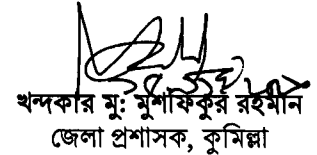 খন্দকার মু: মুশফিকুর রহমান
জেলা প্রশাসক, কুমিল্লা